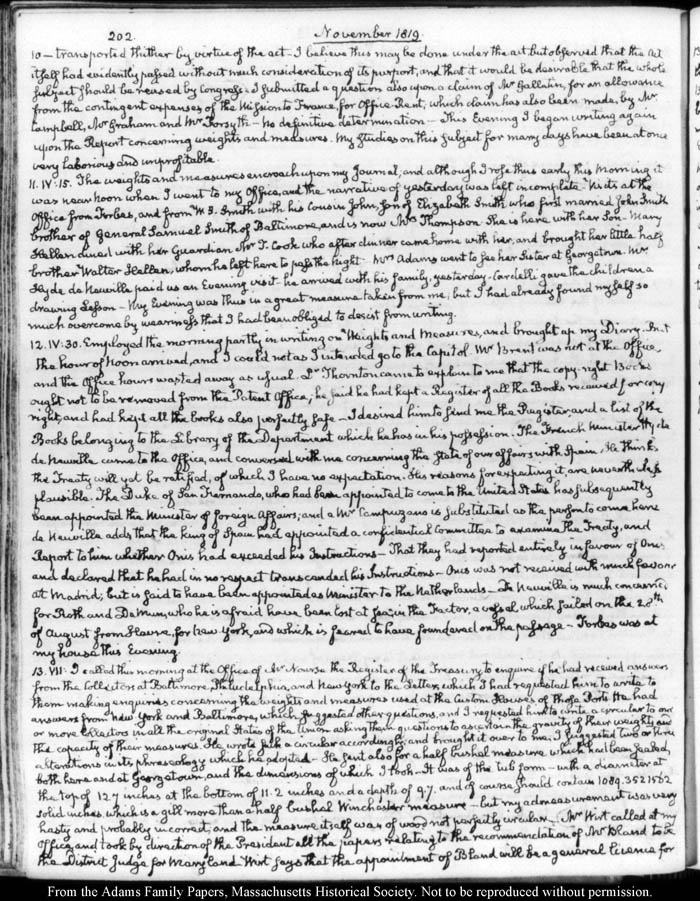 202.
November 1819.
10 — transported thither by virtue of the act — I believe this may be done under the act but observed that the act
itself had evidently passed without much consideration of its purport, and that it would be desirable that the whole
subject should be revised by Congress. I submitted a question also upon a claim of Mr Gallatin, for an allowance
from the contingent expenses of the Mission to France, for Office Rent; which claim has also been made, by Mr
Campbell, Mr Graham and Mr Forsyth — no definitive determination — This Evening I began writing again
upon the Report concerning weights and measures. My studies on this subject for many days have been at once
very laborious and unprofitable.
11. IV. 15. The weights and measures encroach upon my Journal; and although I rose thus early this Morning it
was near Noon when I went to my Office, and the narrative of yesterday was left incomplete. Visits at the
Office from Forbes, and from W. S. Smith with his Cousin John, Son of Elizabeth Smith, who first married John Smith
brother of General Samuel Smith of Baltimore, and is now Mrs Thompson. She is here with her Son. Mary
Hellen dined with her Guardian Mr T. Cook who after dinner came home with her, and brought her little half
brother Walter Hellen, whom he left here to pass the Night. Mrs Adams went to see her Sister at Georgetown. Mr
Hyde de Neuville paid us an Evening visit. he arrived with his family, yesterday. Cardelli gave the children a
drawing Lesson — My Evening was thus in a great measure taken from me; but I had already found myself so
much overcome by weariness that I had been obliged to desist from writing.
12. IV. 30. Employed the morning partly in writing on Weights and Measures, and brought up my Diary. But
the hour of Noon arrived, and I could not as I intended go to the Capitol. Mr Brent was not at the Office,
and the Office hours wasted away as usual. Dr Thornton came to explain to me that the copy-right Books
ought not to be removed from the Patent Office; he said he had kept a Register of all the Books received for copy
right, and had kept all the books also perfectly safe — I desired him to find me the Register, and a list of the
Books belonging to the Library of the Department which he has in his possession. The French Minister Hyde
de Neuville came to the Office, and conversed with me concerning the State of our affairs with Spain. He thinks
the Treaty will yet be ratified, of which I have no expectation. His reasons for expecting it, are nevertheless
plausible. The Duke of San Fernando, who had been appointed to come to the United States has subsequently
been appointed the Minister of Foreign Affairs; and a Mr Campuzano is substituted as the person to come here
de Neuville adds that the King of Spain had appointed a confidential Committee to examine the Treaty, and
Report to him whether Onis had exceeded his Instructions — That they had reported entirely in favour of Onis,
and declared that he had in no respect transcended his Instructions. Onis was not received with much favour
at Madrid; but is said to have been appointed as Minister to the Netherlands — De Neuville is much concerned
for Roth and De Mun, who he is afraid have been lost at sea, in the Factor, a vessel which sailed on the 28th
of August from Havre, for New York, and which is feared to have foundered on the passage — Forbes was at
my house this Evening.
13. VII. I called this morning at the Office of Mr Nourse the Register of the Treasury to enquire if he had received answers
from the Collectors at Baltimore, Philadelphia, and New York to the Letters, which I had requested him to write to
them making enquiries concerning the weights and measures used at the Custom Houses of those Ports. He had
answers from New York and Baltimore, which suggested other questions, and I requested him to write a circular to one
or more Collectors in all the original States of the Union asking them questions to ascertain the gravity of their weights, and
the capacity of their measures. He wrote such a circular accordingly and brought it over to me; I suggested two or three
alterations in its phraseology which he adopted — He sent also for a half bushel measure which had been sealed,
both here and at Georgetown, and the dimensions of which I took — It was of the tub form — with a diameter at
the top of 12.7 inches at the bottom of 11.2 inches and a depth of 9.7, and of course should contain 1089.3521562
solid inches which is a gill more than a half bushel Winchester measure — but my admeasurement was very
hasty and probably incorrect, and the measure itself was of wood not perfectly circular — Mr Wirt called at my
Office, and took by direction of the President all the papers relating to the recommendation of Mr Bland to be
the District Judge for Maryland. Wirt says that the appointment of Bland will be a general licence for
From the Adams Family Papers, Massachusetts Historical Society. Not to be reproduced without permission.